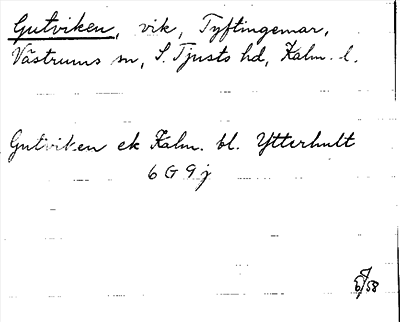 Gutviken, vik, Tyftingemar,
Västrums sn, S. Tjusts hd, Kalm. l.
Gutviken ek Kalm. bl. Ytterhult
6 G 9 j
58